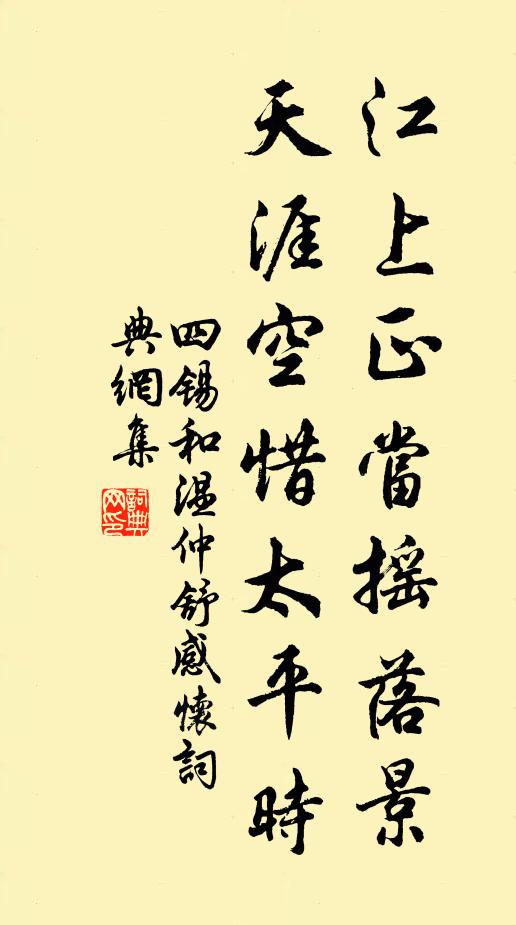 江上正當摇落景
天涯空惜太平時
四锡和温仲舒感懷詞
典網集
詞典網印